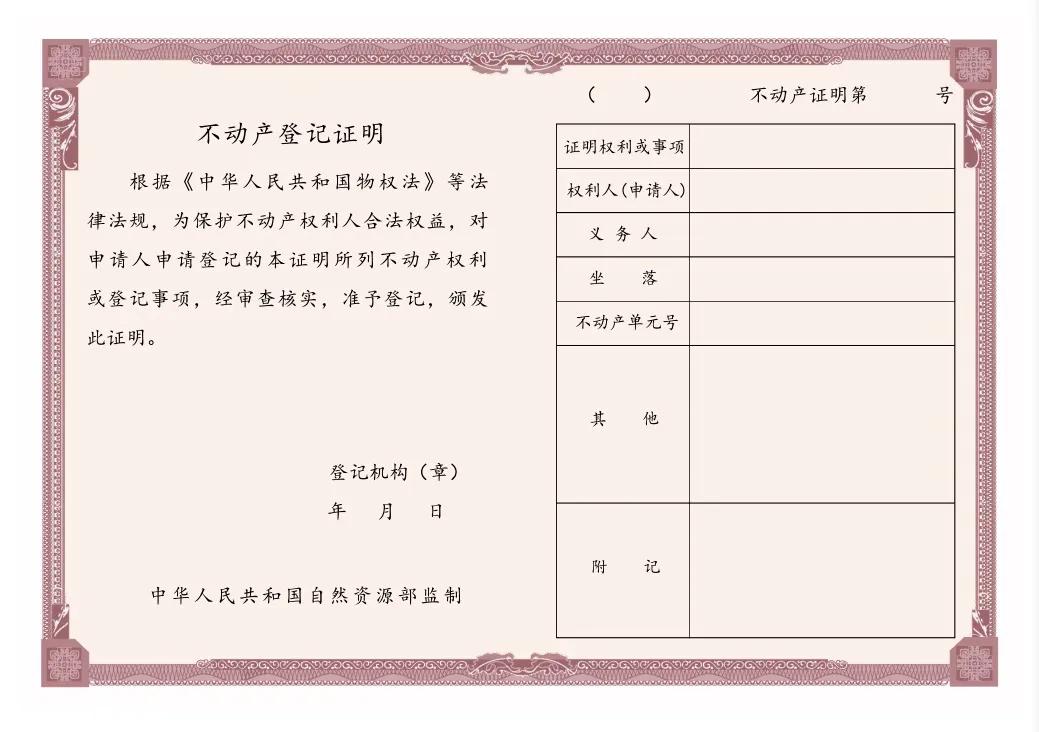 不动产登记证明
根据《中华人民共和国物权法》等法
律法规，为保护不动产权利人合法权益，对
申请人申请登记的本证明所列不动产权利
或登记事项，经审查核实，准予登记，颁发
此证明。
登记机构（章）
年 月 日
中华人民共和国自然资源部监制
（ ） 不动产证明第 号
证明权利或事项
权利人(申请人)
义 务 人
坐 落
不动产单元号
其 他
附 记